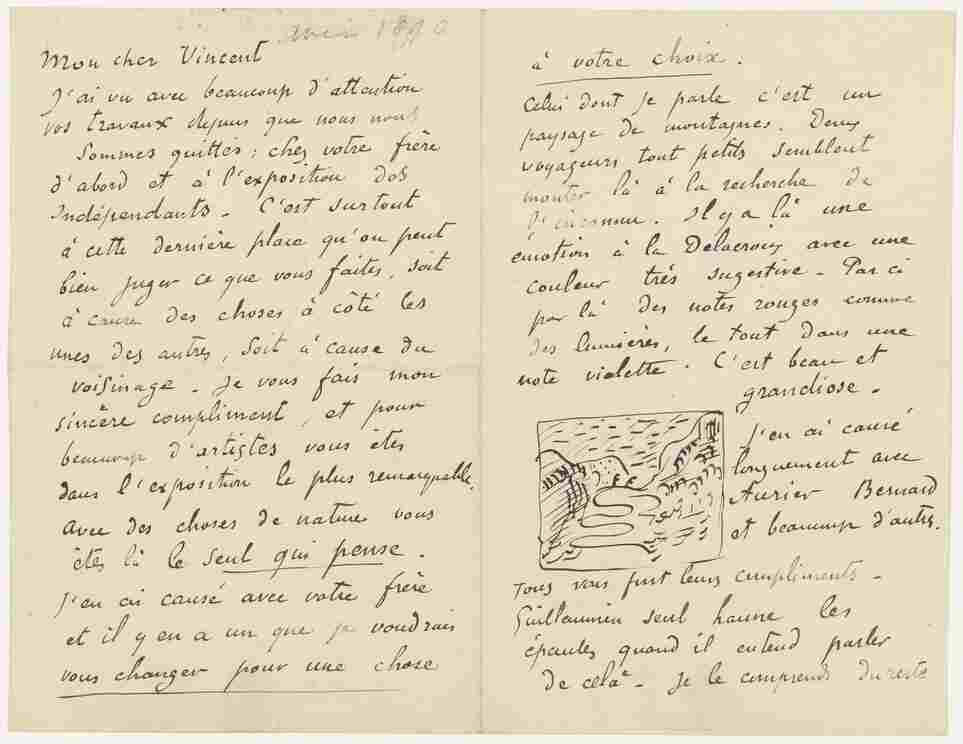 avril 1890
Mon cher Vincent
J'ai vu avec beaucoup d'attention
vos travaux depuis que nous nous
sommes quittés ; chez votre frère
d'abord et à l'exposition des
Indépendants - C'est surtout
à cette dernière place qu'on peut
bien juger ce que vous faites, soit
à cause des choses à côté les
unes des autres, soit à cause du
voisinage - Je vous fais mon
sincère compliment, et pour
beaucoup d'artistes vous êtes
dans l'exposition le plus remarquable.
Avec des choses de nature vous
êtes là le seul qui pense.
J'en ai causé avec votre frère
et il y en a un que je voudrais
vous changer pour une chose
à votre choix.
Celui dont je parle c'est un
paysage de montagnes. Deux
voyageurs tout petits semblent
monter là à la recherche de
l'inconnu. Il y a là une
émotion à la Delacroix avec une
couleur très sugestive - Par ci
par là des notes rouges comme
des lumières, le tout dans une
note violette. C'est beau et
grandiose -
J'en ai causé
longuement avec
Aurier Bernard
et beaucoup d'autres.
Tous vous font leurs compliments -
Guillaumin seul hausse les
épaules quand il entend parler
de celà - Je le comprends du reste